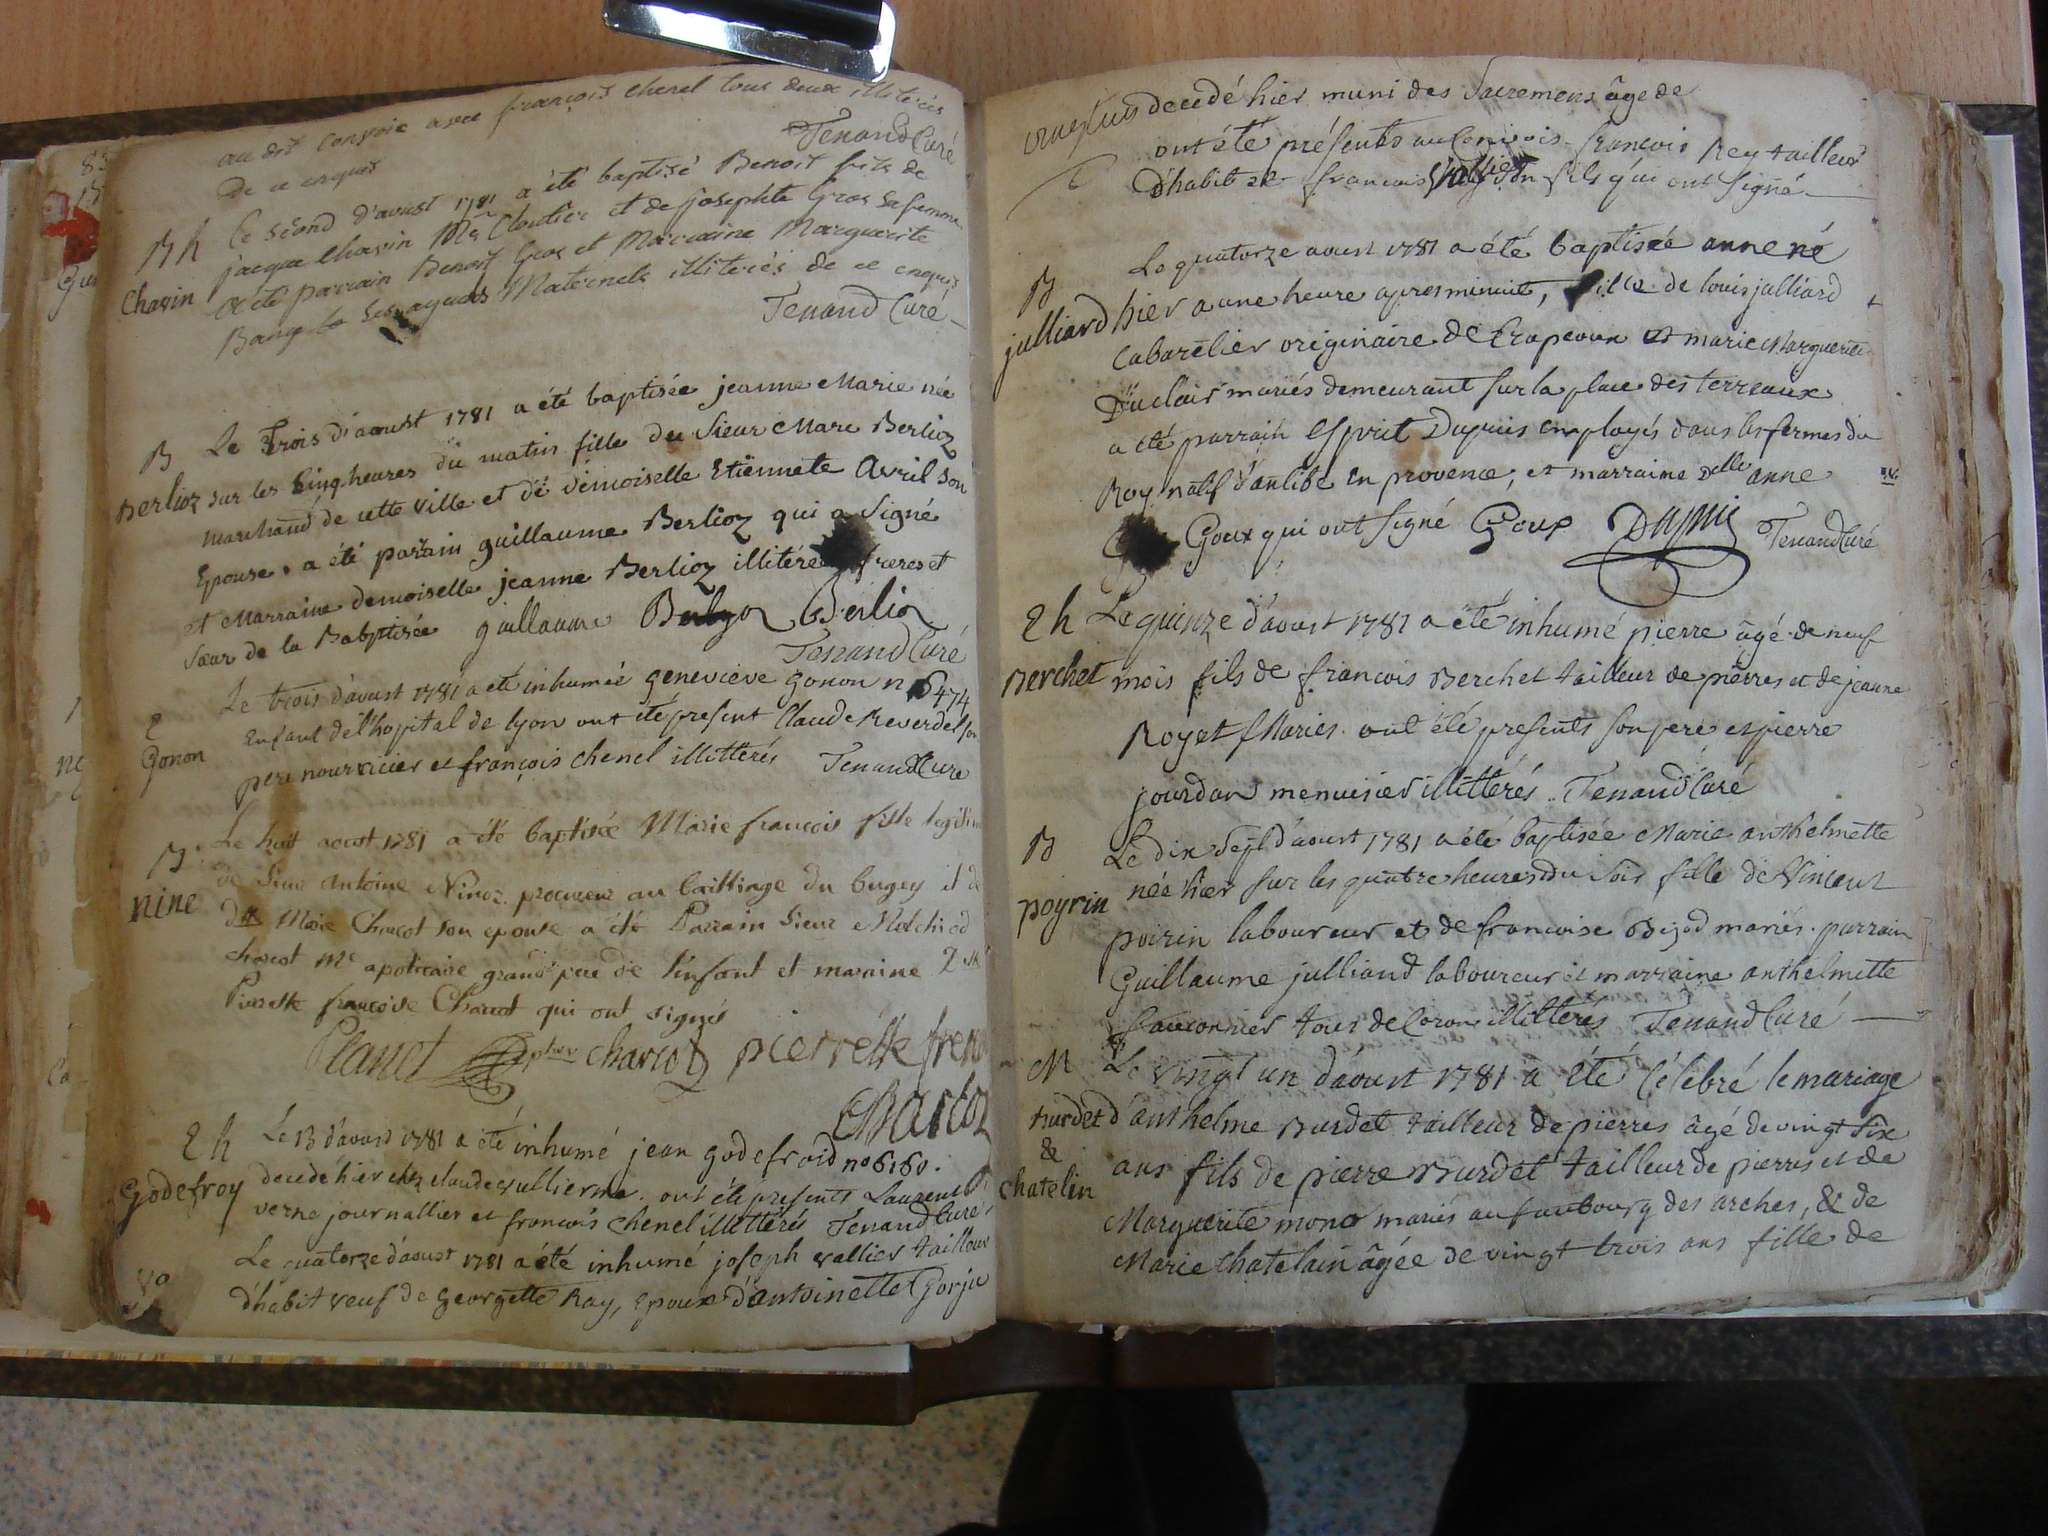 au dit convoie avec françois chenel tous deux illiterés
de ce enquis Tenand Curé
B h
Chavin
Le second d'avust 1781 a été baptisé Benoit fils de
jacque Chavin Me Cloutier et de josephte Gros sa femme
a été parrain Benoit Gros et Marraine Marguerite
Maternels illiterés de ce enquis
Tenand Curé
B
Berlioz
Le Trois d'aoust 1781 a été baptisée jeanne Marie née
sur les Cinq heures du matin fille du Sieur Marc Berlioz
marchand de cette ville et de demoiselle Etiennete Avril son
Epouse. a été parain guillaume Berlioz qui a Signé
et Marraine demoiselle jeanne Berlioz illitérée freres et
Sœur de la Babptisée guillaume Berlioz
Tenand Curé
E
Gonon
Le trois d'avust 1781 a eté inhumée genevieve gonon n 6474
Enfant de l'hopital de lyon ont eté present Claude Reverdel son
pere nourricier et françois chenel illitterés Tenand Curé
B
nine
Le huit aoust 1781 a été baptisée Marie francois fille legitime
de Sieur antoine Niroz procureur au bailliage du bugey et de
dlle Marie Charcot son epouse a été Parrain Sieur Melchiod
charcot Me apoticaire grand pere de l'enfant et maraine Dlle
Pierrette françoise Charcot qui ont signés
charcot pierrette fren
Charcot
E h
Godefroy
Le 13 d'avust 1781 a été inhumé jean godefroid no 6160.
decedé hier chez claude vullierme. ont été présents Laurent
verne journallier et francois chenel illittérés Tenand Curé
Vo
Le quatorze d'aoust 1781 a été inhumé joseph vallier tailleur
d'habit veuf de georgette Ray, epoux d'antoinette Gorju
decedé hier muni des Sacremens âgé de
ont été présents au Convois francois Rey tailleur
d'habit et francois Vallier son fils qui ont signé
B
julliard
Le quatorze aoust 1781 a été baptisée anne né
hier a une heure apres minuit, fille de louis julliard
Cabarétier originaire de Crapeoux et marie Marguerite
Duclair mariés demeurant sur la place des terreaux
a été parrain esprit Dupuis employés dans les fermes du
Roy natif d'antibe en provence, et marraine Delle anne
Goux qui ont signé Goux Dupuis Tenand Curé
E h
Berchet
Le quinze d'aoust 1781 a été inhumé pierre âgé de neuf
mois fils de francois Berchet tailleur de pierres et de jeanne
Royet Mariés. ont été presents son pere et pierre
jourdan menuisier illittérés. Tenand Curé
B
poyrin
Le dix Sept d'aoust 1781 a été baptisée Marie anthelmette
née hier sur les quatre heures du soir fille de Vincent
poirin laboureur et de francoise Bijod mariés. parrain
Guillaume julliand laboureur et marraine anthelmette
fauconnier tous de Coron illittérés Tenand Curé
M
Burdet
&
Chatelin
Le vingt un d'aoust 1781 a été Célébré le mariage
d'anthelme Burdet tailleur de pierres âgé de vingt six
ans fils de pierre Burdet tailleur de pierres et de
Marguerite mono mariés au faubourg des arches, & de
Marie Chatelain âgée de vingt trois ans fille de